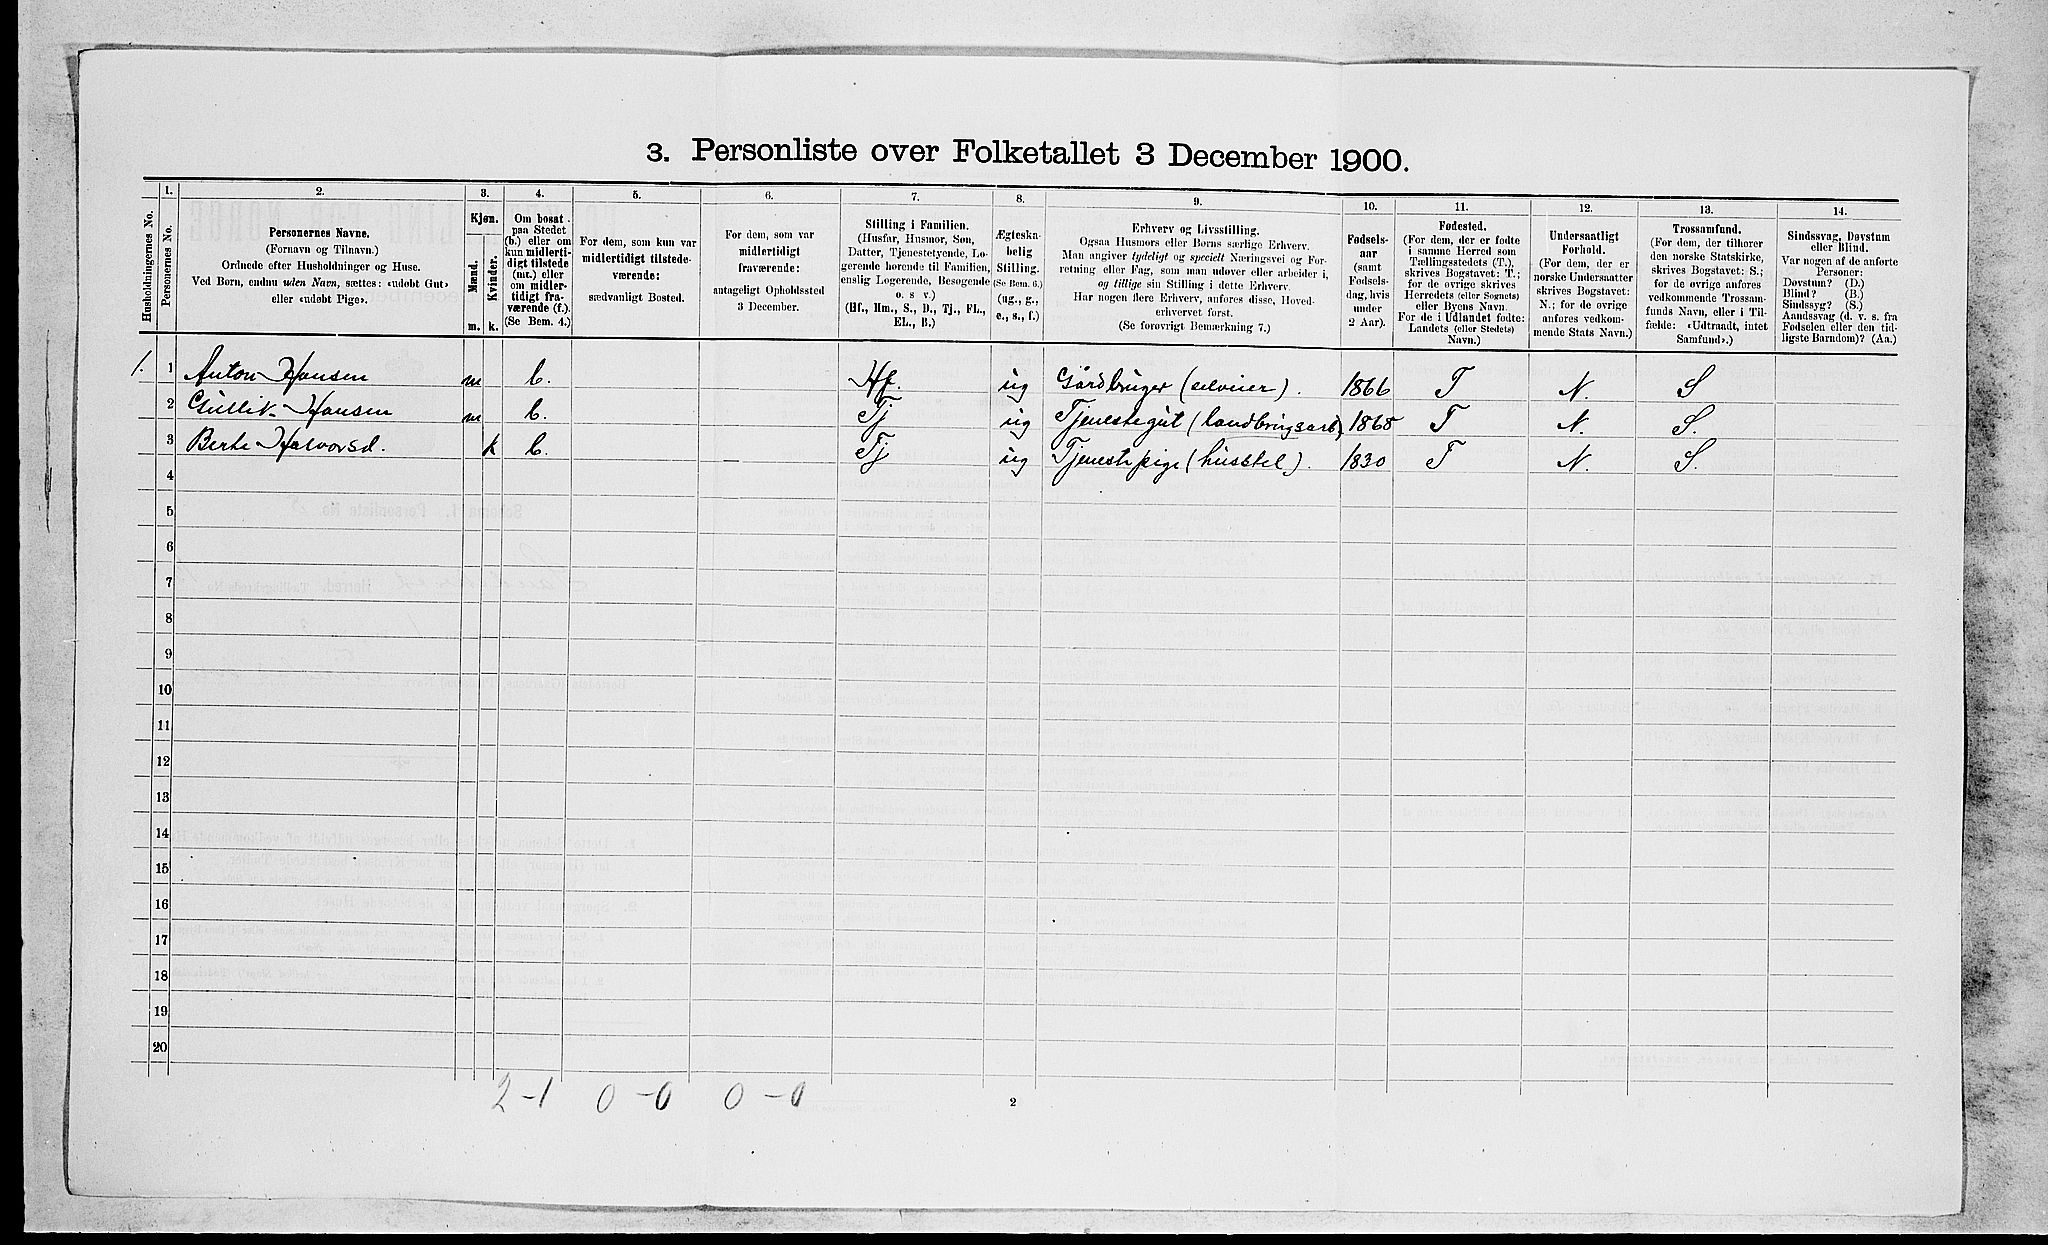 3. Personliste over Folketallet 3 December 1900.
1. 2. 3. 4. 5. 6. 7. 8. 9. 10. 11. 12. 13. 14.
Husholdningernes No.
Personernes No.
Personernes Navne.
(Fornavn og Tilnavn.)
Ordnede efter Husholdninger og Huse.
Ved Børn, endnu uden Navn, sættes: «udøbt Gut»
eller «udøbt Pige».
Kjøn.
Mænd.
Kvinder.
m. k.
Om bosat
paa Stedet
(b.) eller om
kun midlerti-
digt tilstede
(mt.) eller
om midler-
tidigt fra-
værende (f.).
(Se Bem. 4.)
For dem, som kun var
midlertidigt tilstede-
værende:
sædvanligt Bosted.
For dem, som var
midlertidigt
fraværende:
antageligt Opholdssted
3 December.
Stilling i Familien.
(Husfar, Husmor, Søn,
Datter, Tjenestetyende, Lo-
gerende hørende til Familien,
enslig Logerende, Besøgende
o. s v.)
(Hf., Hm., S., D., Tj., FL.,
EL., B.)
Ægteska-
belig
Stilling.
(Se Bem. 6.)
(ug., g.,
e., s., f.)
Erhverv og Livsstilling.
Ogsaa Husmors eller Børns særlige Erhverv.
Man angiver tydeligt og specielt Næringsvei og For-
retning eller Fag, som man udøver eller arbeider i,
og tillige sin Stilling i dette Erhverv.
Har nogen flere Erhverv, anføres disse, Hoved-
erhvervet først.
(Se forøvrigt Bemærkning 7.)
Fødsels-
aar
(samt
Fødsels-
dag, hvis
under
2 Aar).
Fødested.
(For dem, der er fødte
i samme Herred som
Tællingsstedets (T.),
skrives Bogstavet: T.;
for de øvrige skrives
Herredets (eller Sognets)
eller Byens Navn.
For de i Udlandet fødte:
Landets (eller Stedets)
Navn.)
Undersaatligt
Forhold.
(For dem, der er
norske Undersaatter
skrives Bogstavet:
N.; for de øvrige
anføres vedkom-
mende Stats Navn.)
Trossamfund.
(For dem, der tilhører
den norske Statskirke,
skrives Bogstavet: S.;
for de øvrige anføres
vedkommende Trossam-
funds Navn, eller i Til-
fælde: «Udtraadt, intet
Samfund».)
Sindssvag, Døvstum
eller Blind.
Var nogen af de anførte
Personer:
Døvstum? (D.)
Blind? (B.)
Sindssyg? (S.)
Aandssvag (d. v. s. fra
Fødselen eller den tid-
ligste Barndom)? (Aa.)
1. 1 Anton Hansen m b. Hf. ug Gårdbruger (selveier). 1866 T N. S
2 Gullik Hansen m b. Tj ug Tjenestegut (landbrugsarb) 1868 T N. S.
3 Berte Halvorsd. k b. — Tj ug Tjenestpige (husstel). 1830 T N. S.
4
5
6
7
8
9
10
11
12
13
14
15
16
17
18
19
20
2-1 0-0 0-0
2